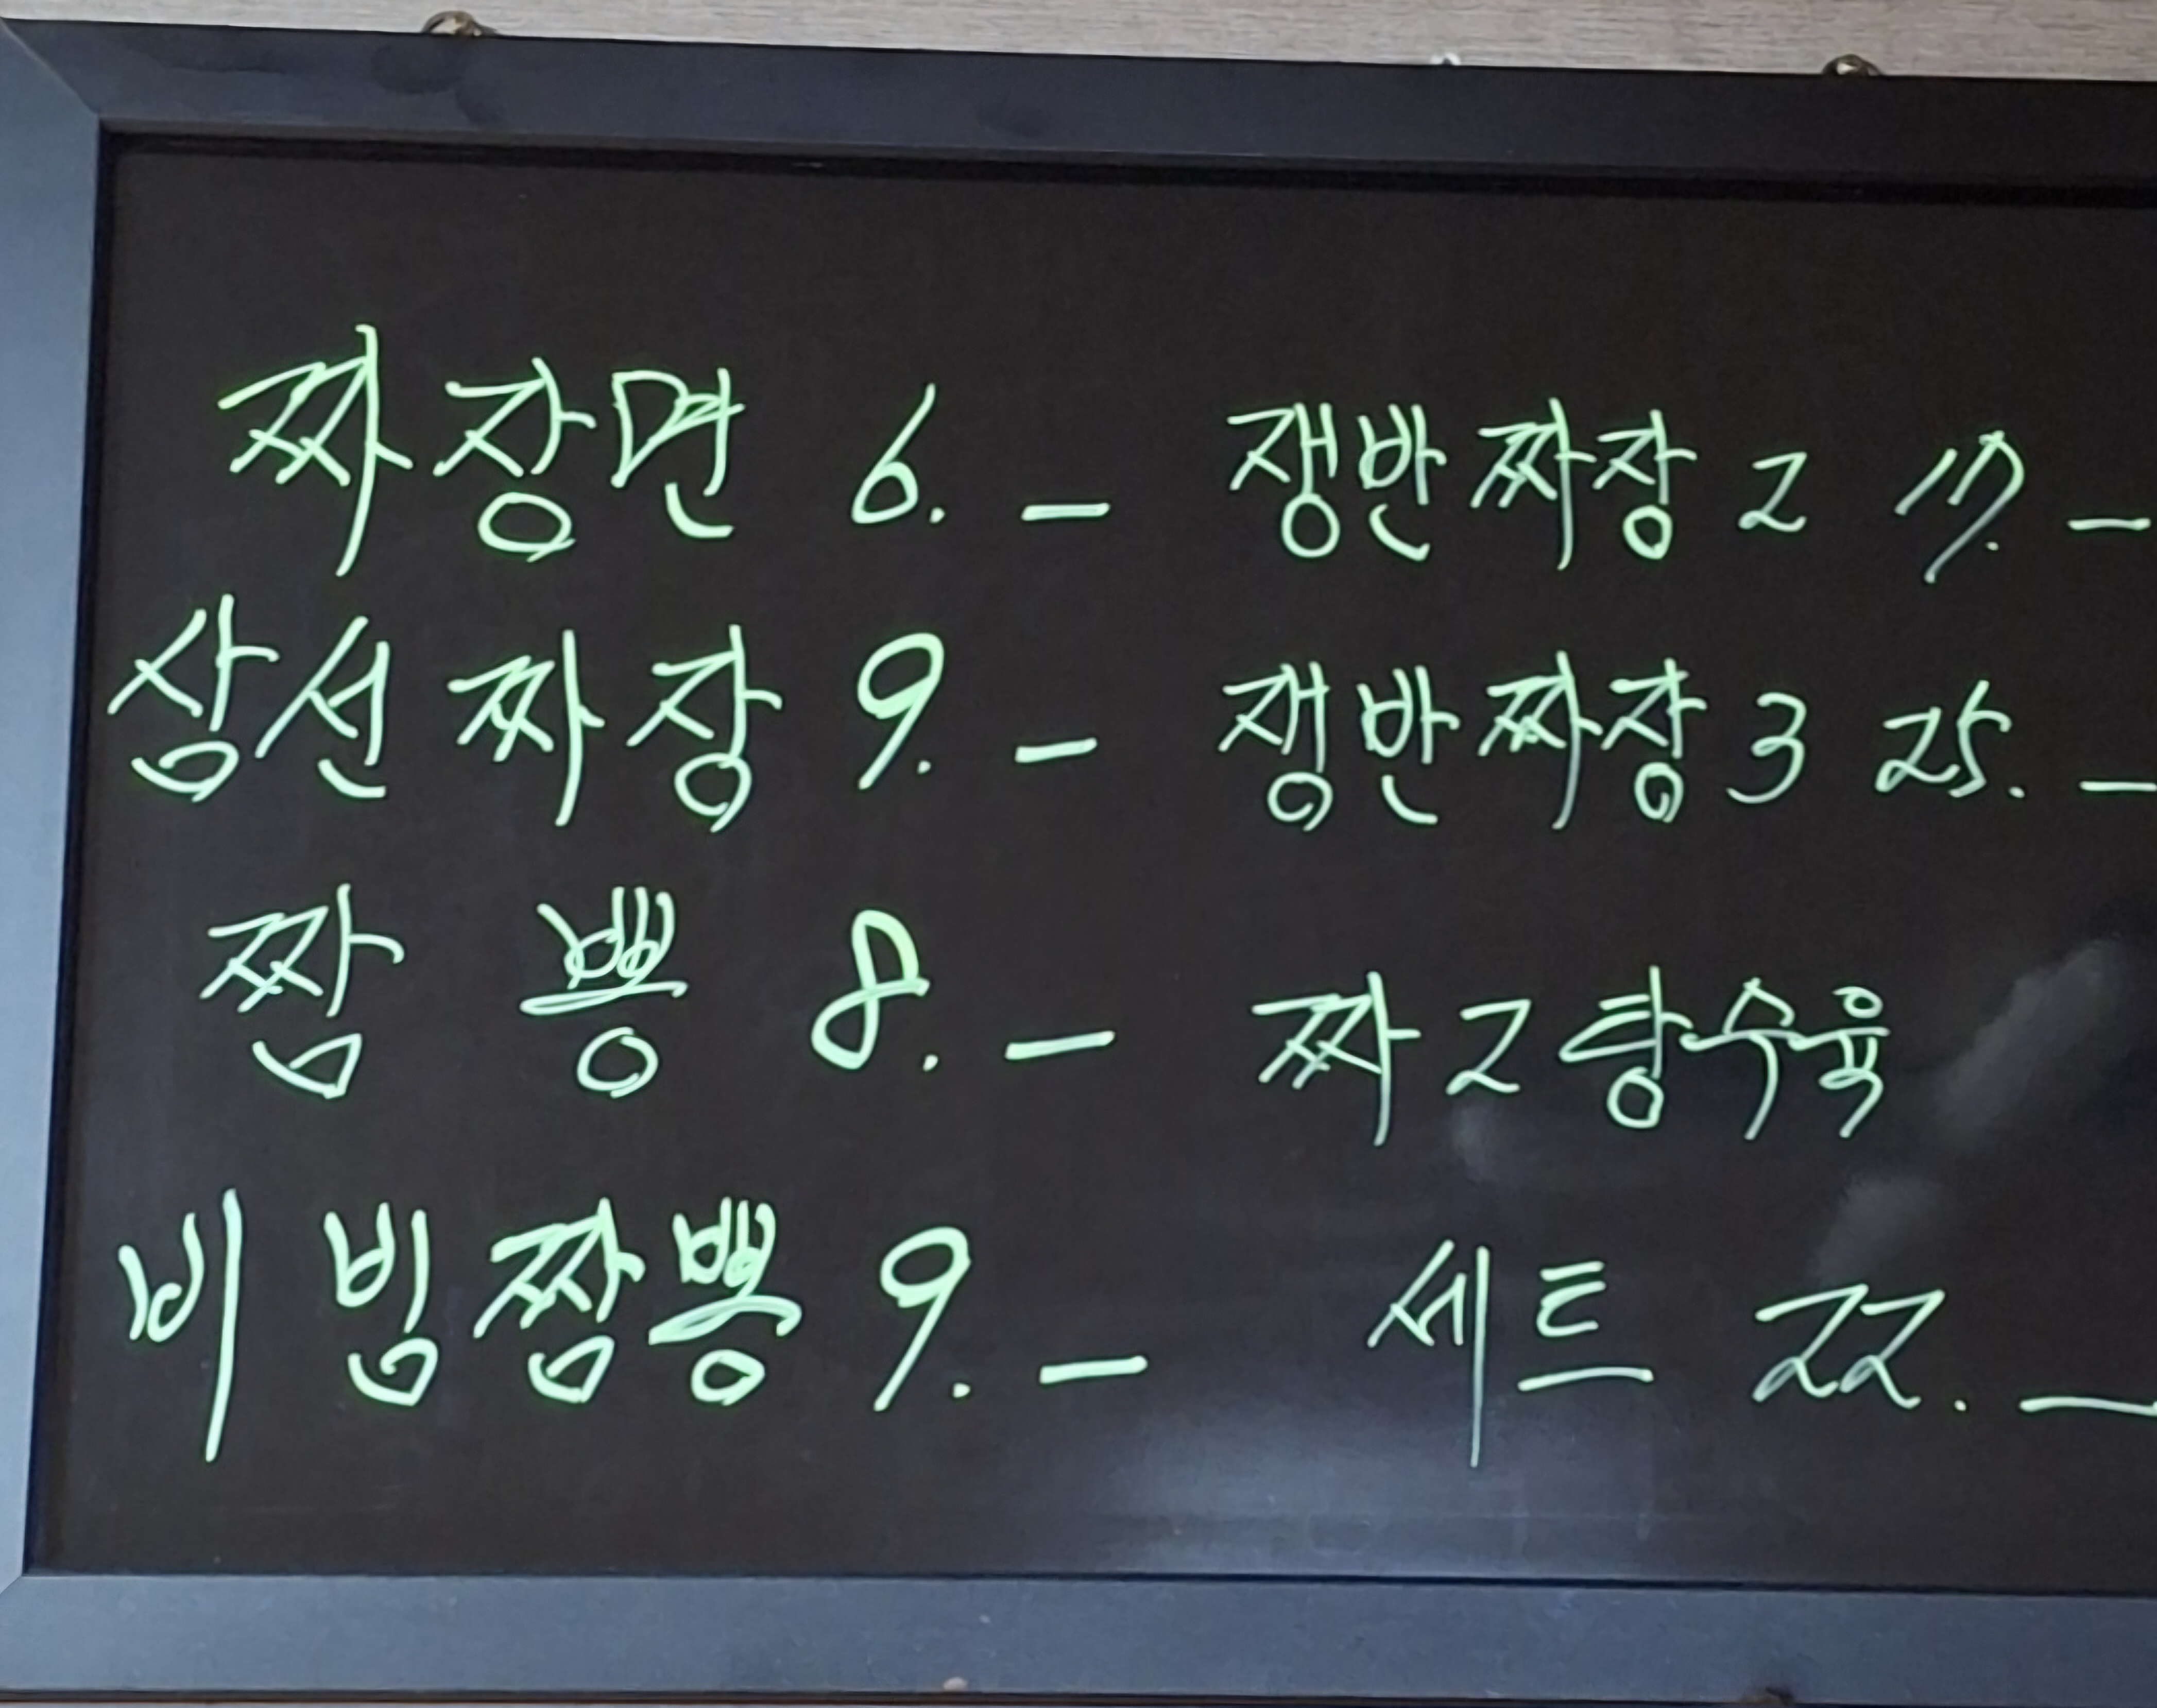 짜장면 6.-
삼선짜장 9.-
짬뽕 8.-
비빔짬뽕 9.-
쟁반짜장 2 17.-
쟁반짜장 3 25.-
짜2탕수육
세트 22.-